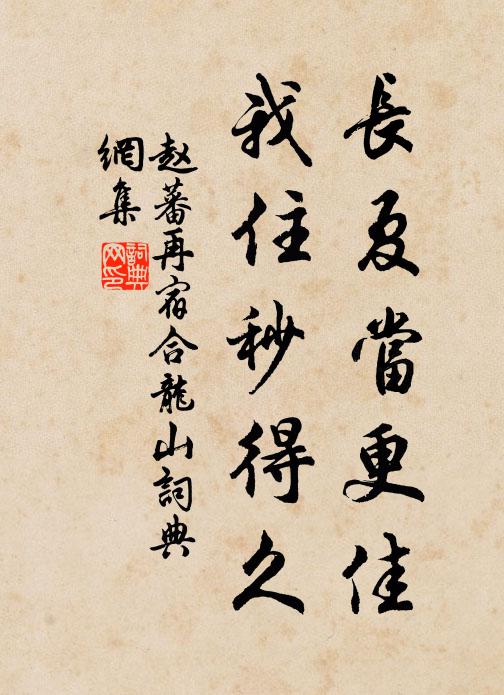 長夏當更佳
我住秒得久
赵蕃再宿合龍山詞典
網集
詞典
网印